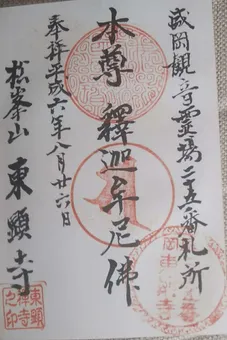 盛岡観音霊場二十五番札所
本尊釋迦牟尼佛
奉拝平成六年八月廿六日
松峯山東顕寺
東顕
禅寺
之印